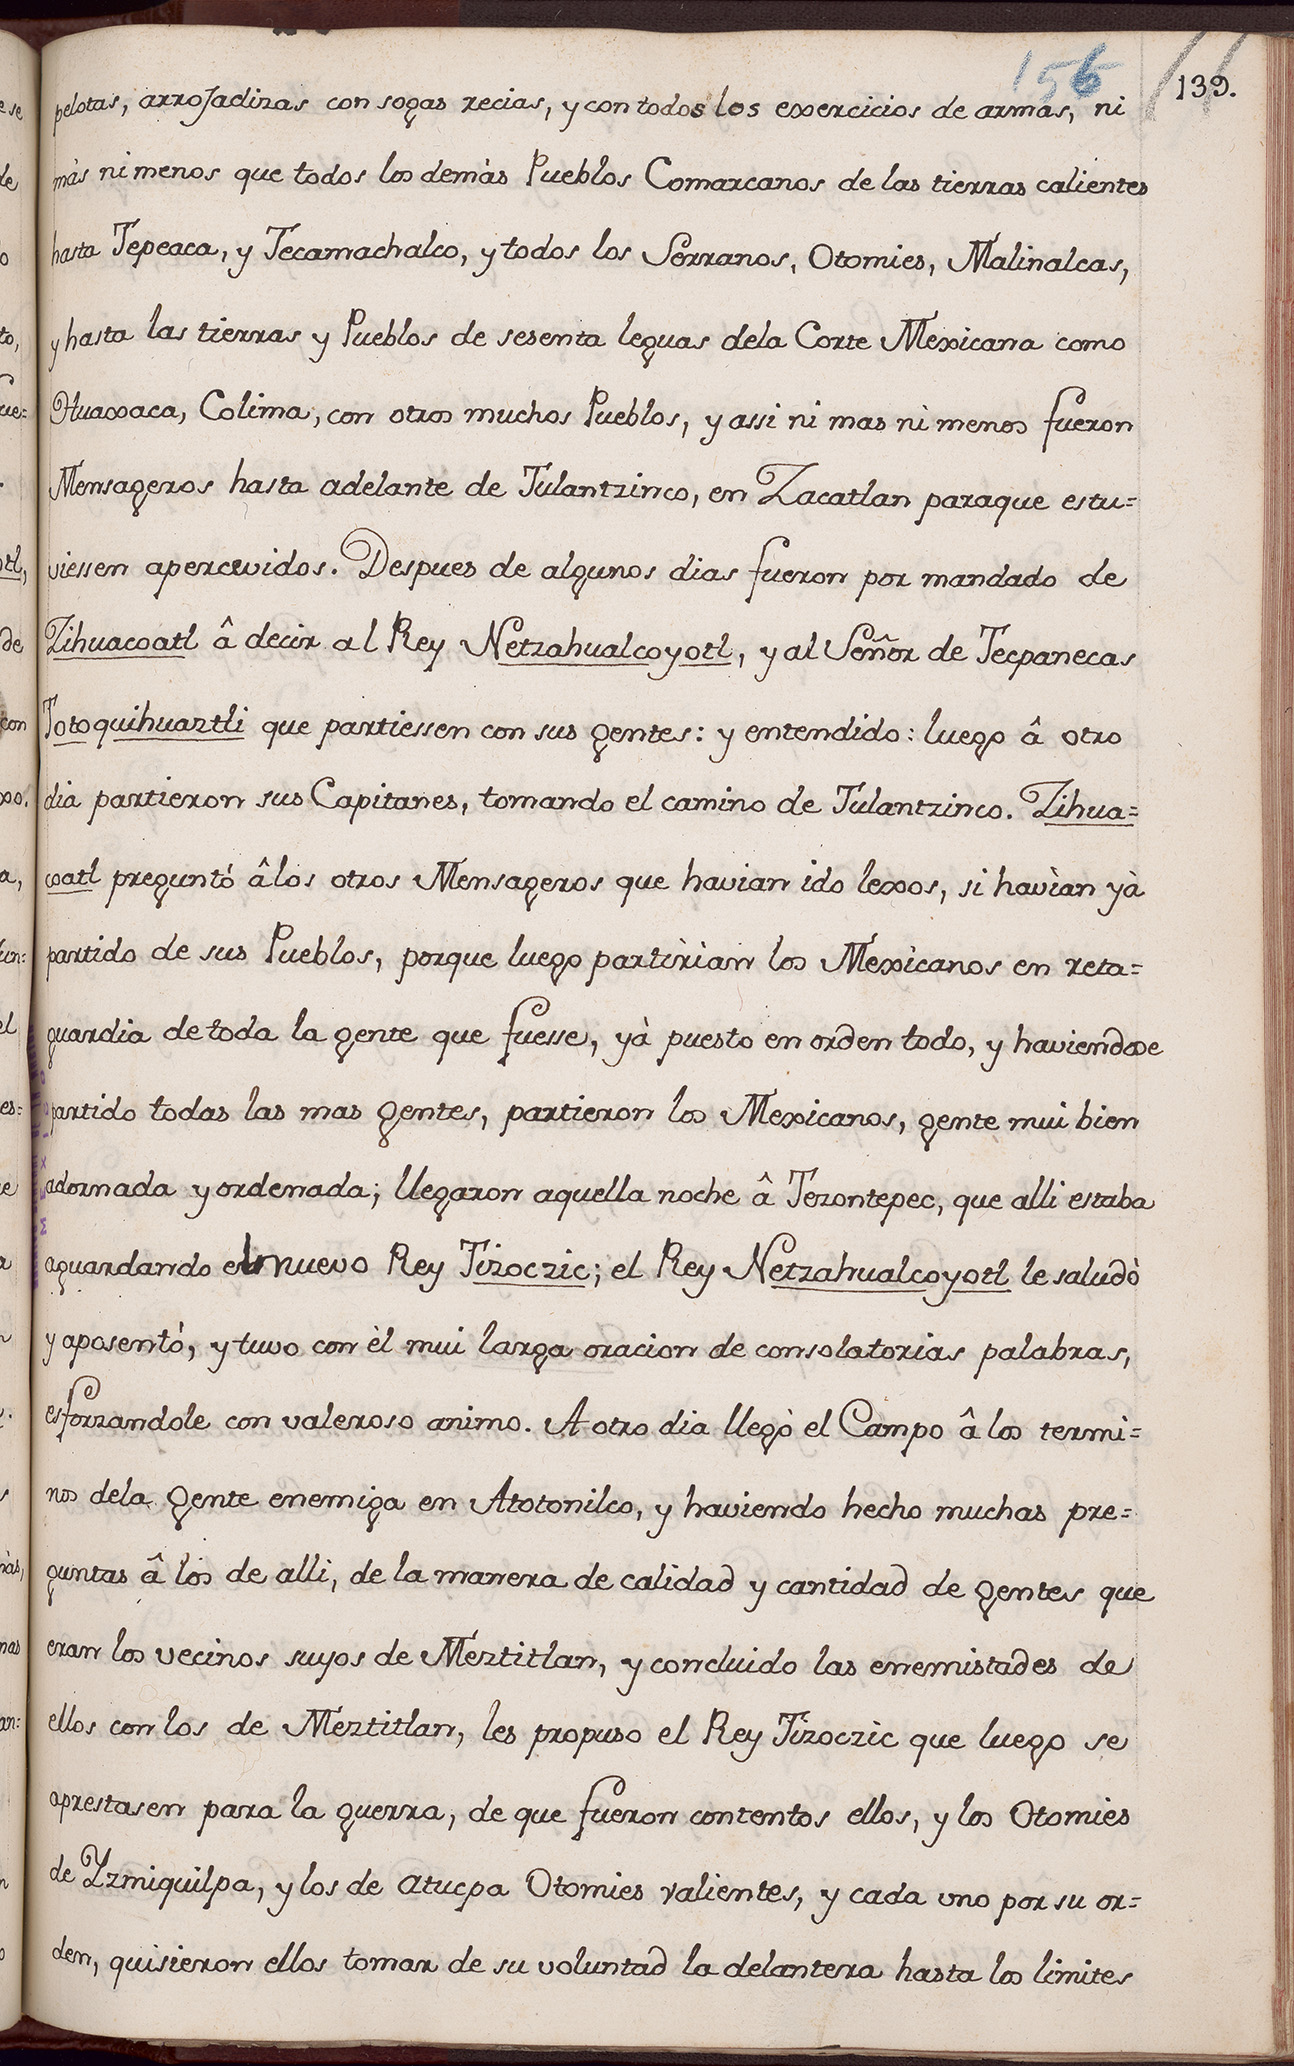 156 139.
pelotas, arrojadizas con sogas recias, y con todos los exercicios de armas, ni
màs ni menos que todos los demàs Pueblos Comarcanos de las tierras calientes
hasta Tepeaca, y Tecamachalco, y todos los Serranos, Otomies, Malinalcas,
y hasta las tierras y Pueblos de sesenta leguas dela Corte Mexicana como
Huaxaca, Colima, con otros muchos Pueblos, y assi ni mas ni menos fueron
Mensageros hasta adelante de Tulantzinco, en Zacatlan paraque estu=
viessen apercevidos. Despues de algunos dias fueron por mandado de
Zihuacoatl â decir al Rey Netzahualcoyotl, y al Señor de Tecpanecas
Totoquihuaztli que partiessen con sus gentes: y entendido: luego â otro
dia partieron sus Capitanes, tomando el camino de Tulantzinco. Zihua=
coatl preguntó âlos otros Mensageros que havian ido lexos, si havìan yà
partido de sus Pueblos, porque luego partirian los Mexicanos en reta=
guardia de toda la gente que fuesse, yà puesto en orden todo, y haviendose
partido todas las mas gentes, partieron los Mexicanos, gente mui bien
adornada y ordenada; llegaron aquella noche â Tezontepec, que alli estaba
aguardando el nuevo Rey Tizoczic; el Rey Netzahualcoyotl le saludò
y aposentò, y tuvo con èl mui larga oracion de consolatorias palabras,
esforzandole con valeroso animo. A otro dia llegò el Campo â los termi=
nos dela gente enemiga en Atotonilco, y haviendo hecho muchas pre=
guntas â los de alli, de la manera de calidad y cantidad de gentes que
eran los vecinos suyos de Meztitlan, y concluido las enemistades de
ellos con los de Meztitlan, les propuso el Rey Tizoczic que luego se
aprestasen para la guerra, de que fueron contentos ellos, y los Otomies
de Yzmiquilpa, y los de atucpa Otomies valientes, y cada uno por su or=
den, quisieron ellos tomar de su voluntad la delantera hasta los limites